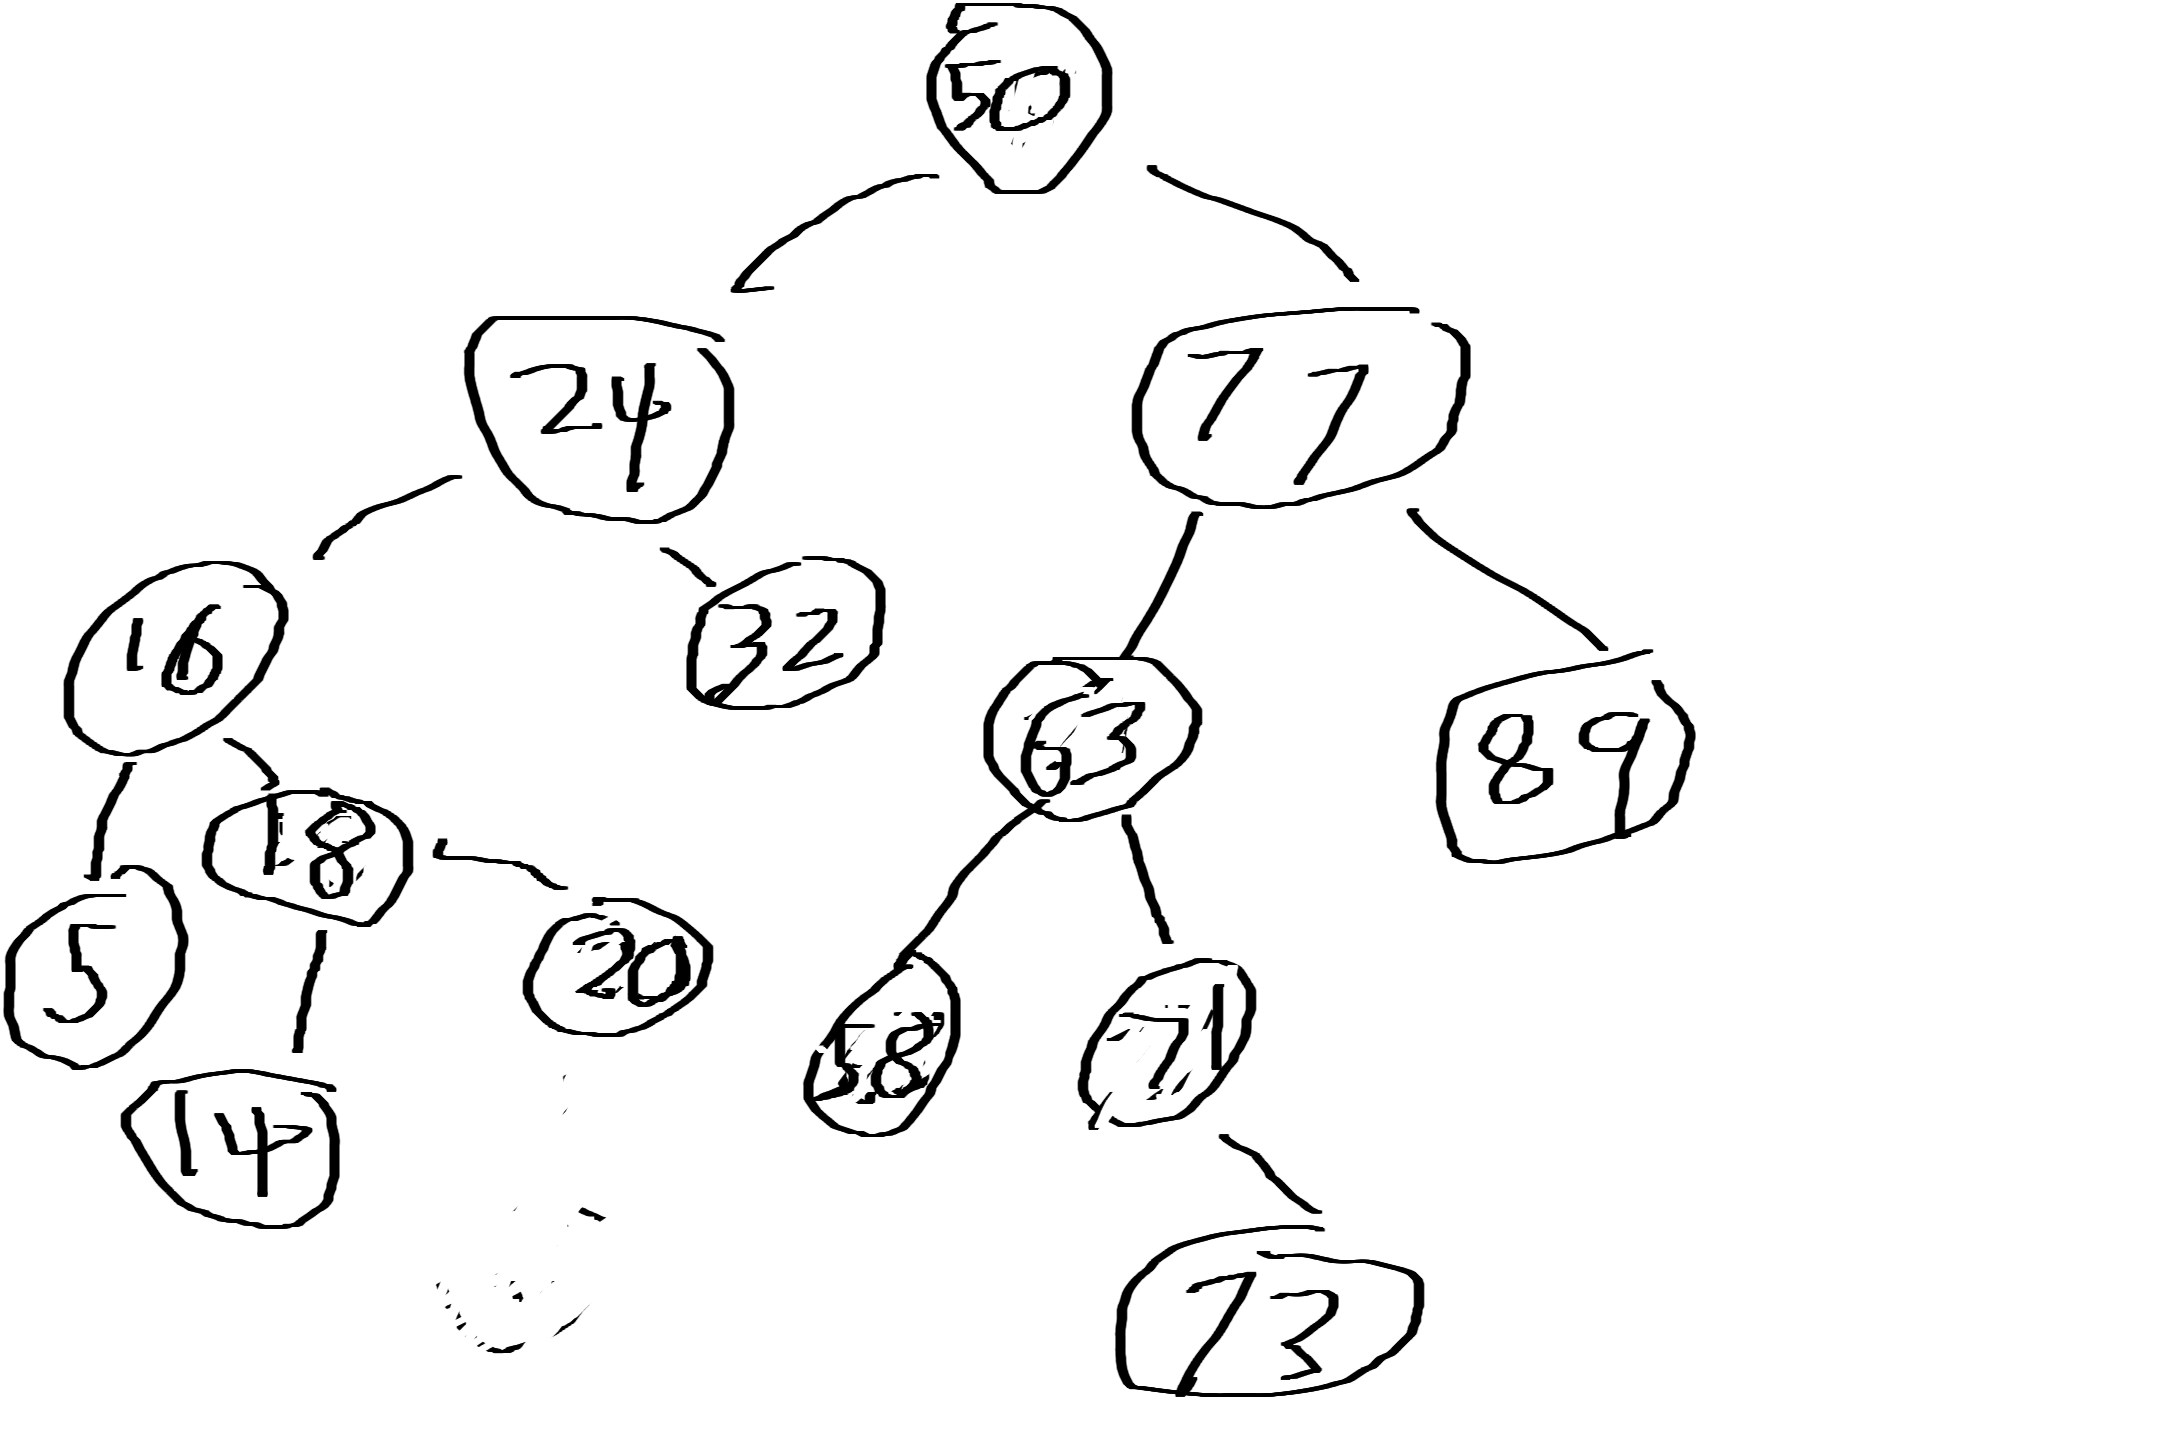 50
24 77
16 32 63 89
5 18 20 58 71
14 73